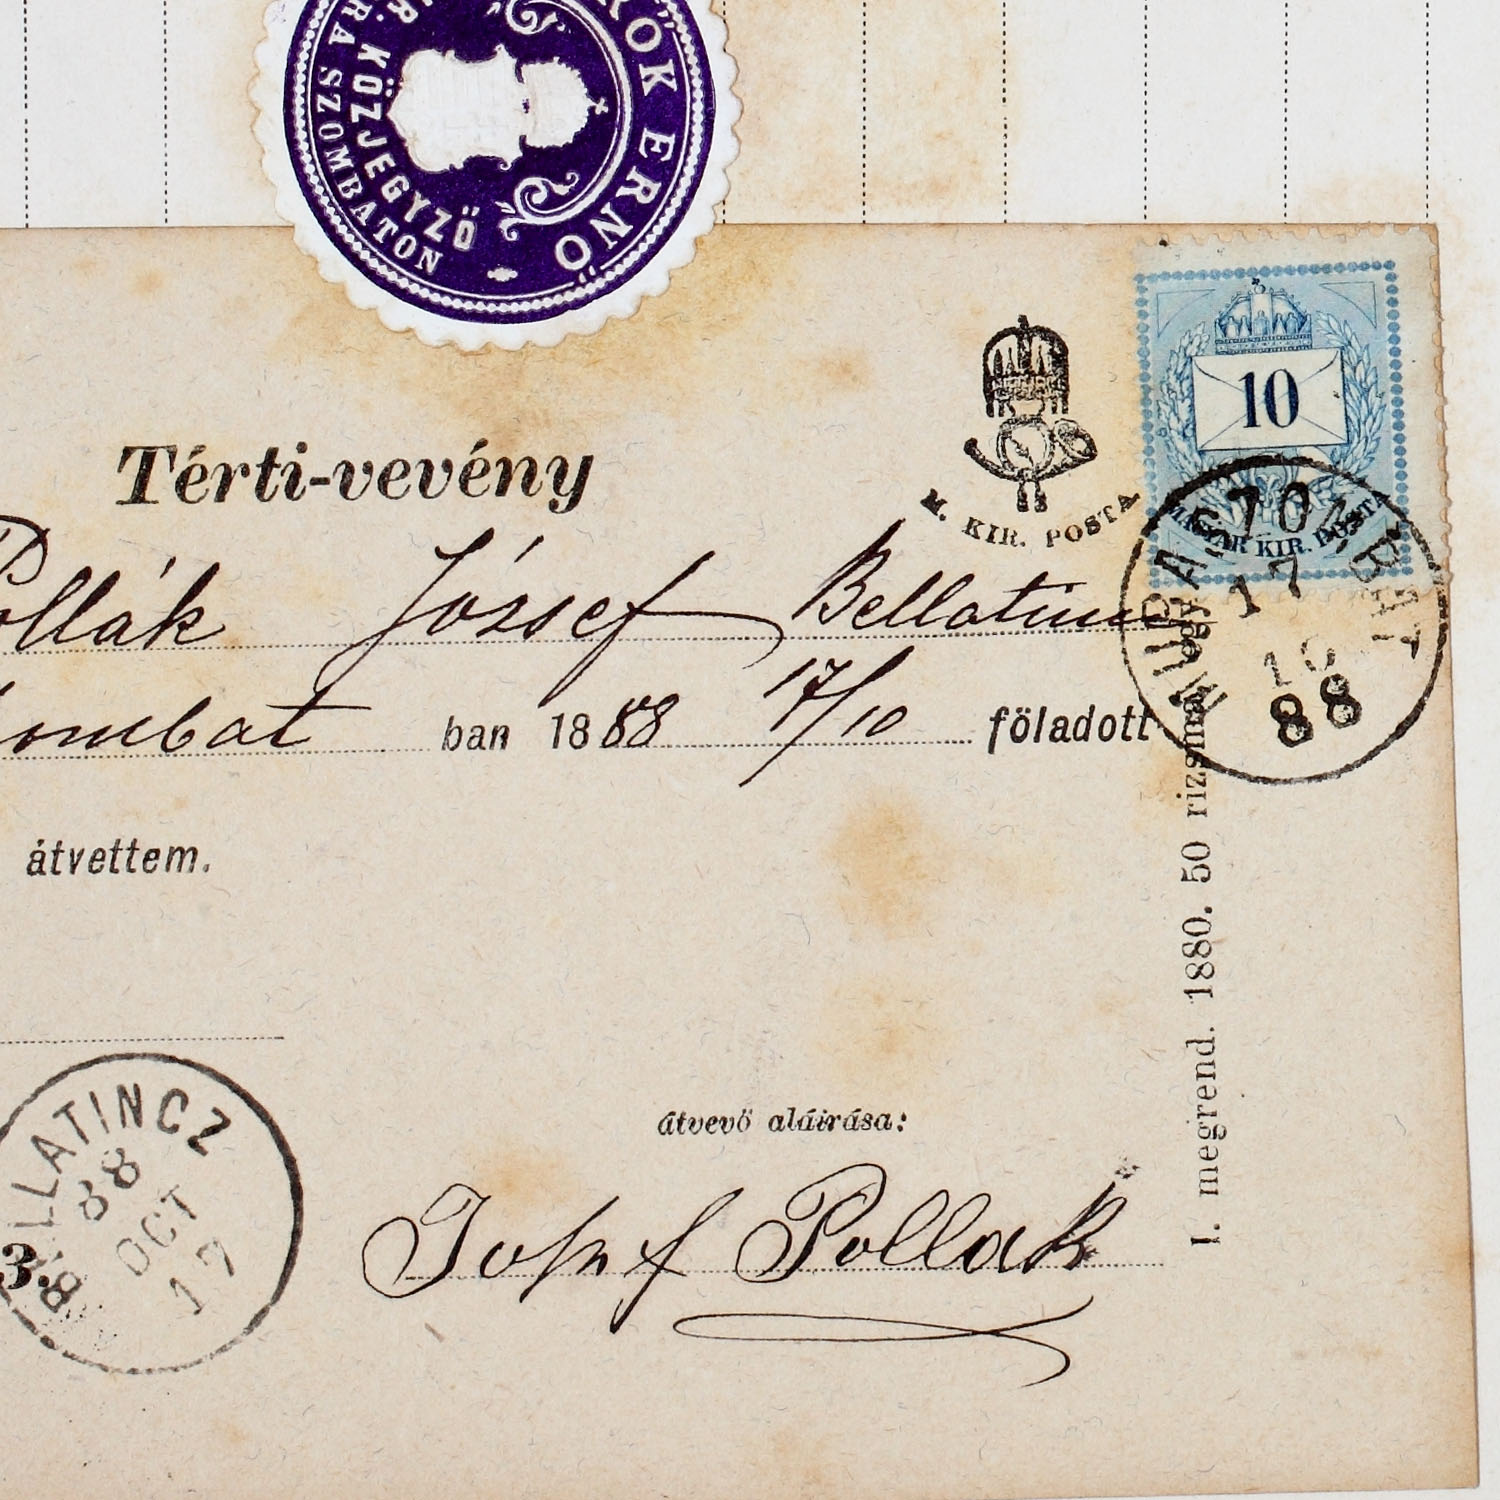 KÖZJEGYZŐ
RA SZOMBATON
RÖK ERNŐ
Térti-vevény
M. KIR. POSTA
10
MAGYAR KIR. POSTA
MURA SZOMBAT
17
10
88
Pollák József Bellatincz
ombat ban 1888 17/10 föladott
átvettem.
I. megrend. 1880. 50 rizsma
BELLATINCZ
88
OCT
17
3.
átvevő aláirása:
Josef Pollak